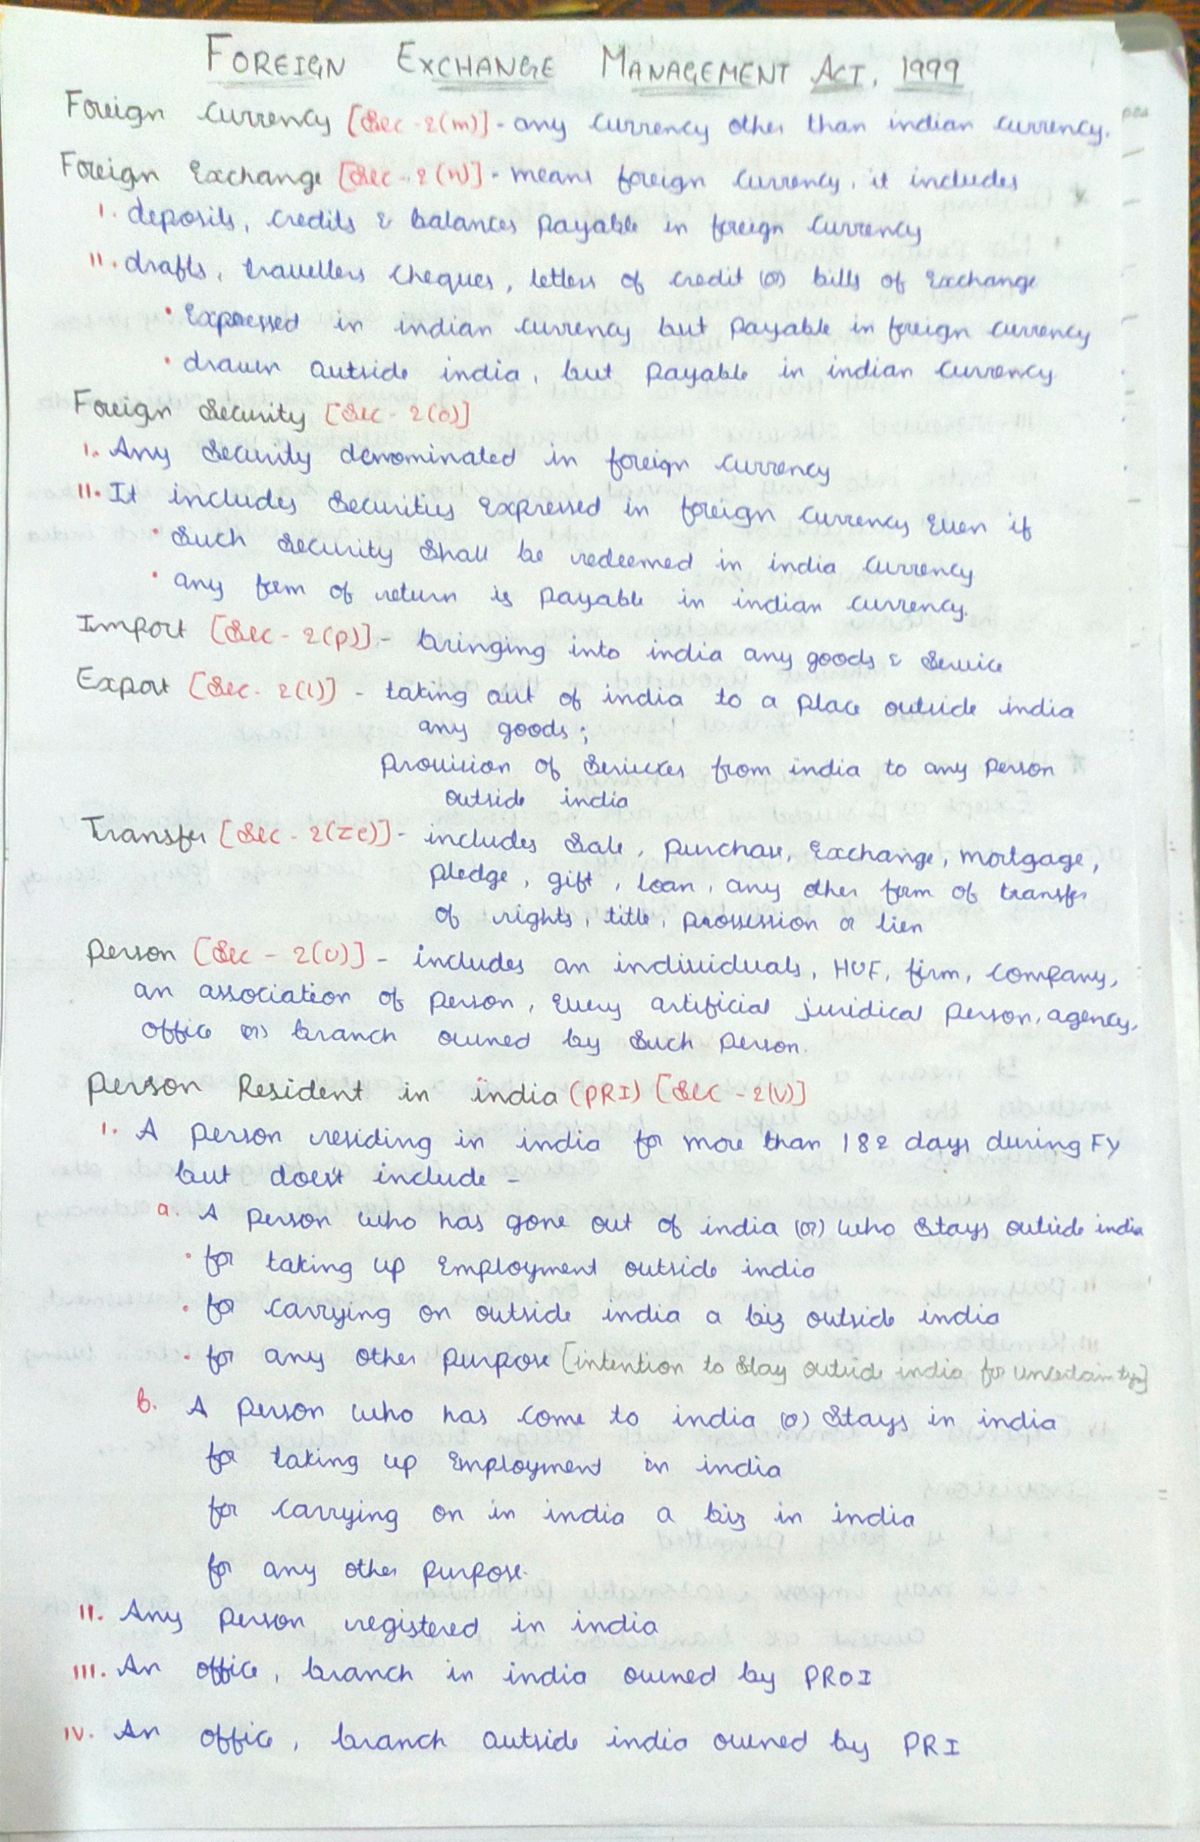 FOREIGN EXCHANGE MANAGEMENT ACT, 1999
Foreign Currency [Sec-2(m)] - any currency other than indian currency.
Foreign Exchange [Sec-2(n)] - means foreign currency, it includes
i. deposits, credits & balances payable in foreign currency
ii. drafts, travellers cheques, letters of credit (or) bills of exchange
• Expressed in indian currency but payable in foreign currency
• drawn outside india, but payable in indian currency
Foreign Security [Sec-2(o)]
i. Any Security denominated in foreign currency
ii. It includes Securities expressed in foreign currency Even if
• Such Security Shall be redeemed in india currency
• any form of return is payable in indian currency.
Import [Sec-2(p)] - bringing into india any goods & Service
Export [Sec-2(l)] - taking out of india to a place outside india
any goods;
provision of Services from india to any person
outside india
Transfer [Sec-2(ze)] - includes Sale, purchase, Exchange, mortgage,
pledge, gift, loan, any other form of transfer
of rights, title, possession or lien
Person [Sec-2(u)] - includes an individuals, HUF, firm, company,
an association of person, Every artificial juridical person, agency,
office (or) branch owned by Such Person.
Person Resident in india (PRI) [Sec-2(v)]
i. A person residing in india for more than 182 days during FY
but does't include -
a. A person who has gone out of india (or) who Stays outside india
• for taking up Employment outside india
• for carrying on outside india a biz outside india
• for any other purpose [intention to stay outside india for uncertain
b. A person who has come to india (o) Stays in india
for taking up Employment in india
for carrying on in india a biz in india
for any other purpose.
ii. Any person registered in india
iii. An office, branch in india owned by PROI
iv. An office, branch outside india owned by PRI